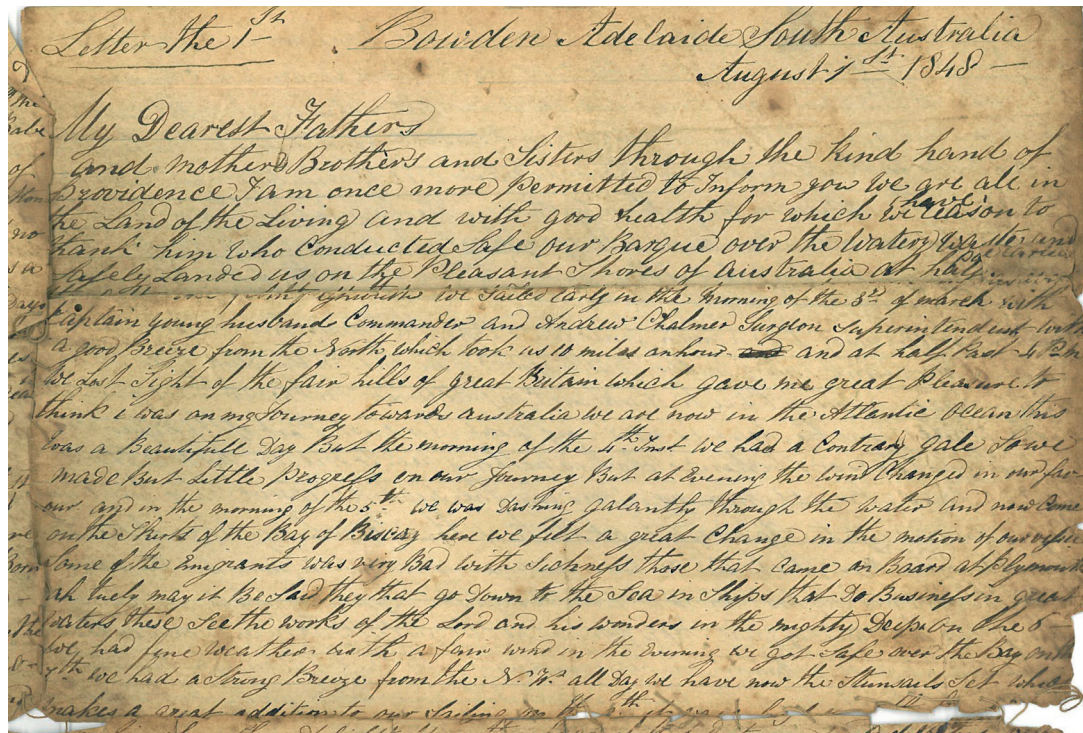 Letter the 1st Bowden Adelaide South Australia
August 1st 1848
My Dearest Fathers
and mothers Brothers and Sisters through the kind hand of
Providence I am once more permitted to Inform you we are all in
the Land of the Living and with good health for which we have reason to
thank him Who Conducted Safe our Barque over the Watery
Safely Landed us on the Pleasant Shores of Australia at half
we Sailed early in the morning of the 3rd of march with
Captain young husband Commander and Andrew Chalmer Surgeon Superintendent with
a good Breeze from the North which took us 10 miles an hour and at half Past 4
We Lost Sight of the fair hills of great Britain which gave me great Pleasure to
think i was on my Journey towards australia we are now in the Atlantic Ocean this
was a Beautifull Day But the morning of the 4th Inst we had a Contrary gale So we
made But Little Progress on our Journey But at Evening the wind Changed in our fav
our and in the morning of the 5th we was Dashing galantly through the water and now Come
on the Skirts of the Bay of Biscay here we felt a great Change in the motion of our
Some of the Emigrants was very Bad with Sickness those that Came on Board at Plymouth
ah may it Be Said they that go Down to the Sea in Ships that Do Business in great
waters these See the works of the Lord and his wonders in the mighty Deep on the 6
we had fine weather with a fair wind in the Evening we got Safe over the Bay on the
7th we had a Strong Breeze from the N.W. all Day we have now the Stunsails Set which
makes a great addition to our Sailing on the